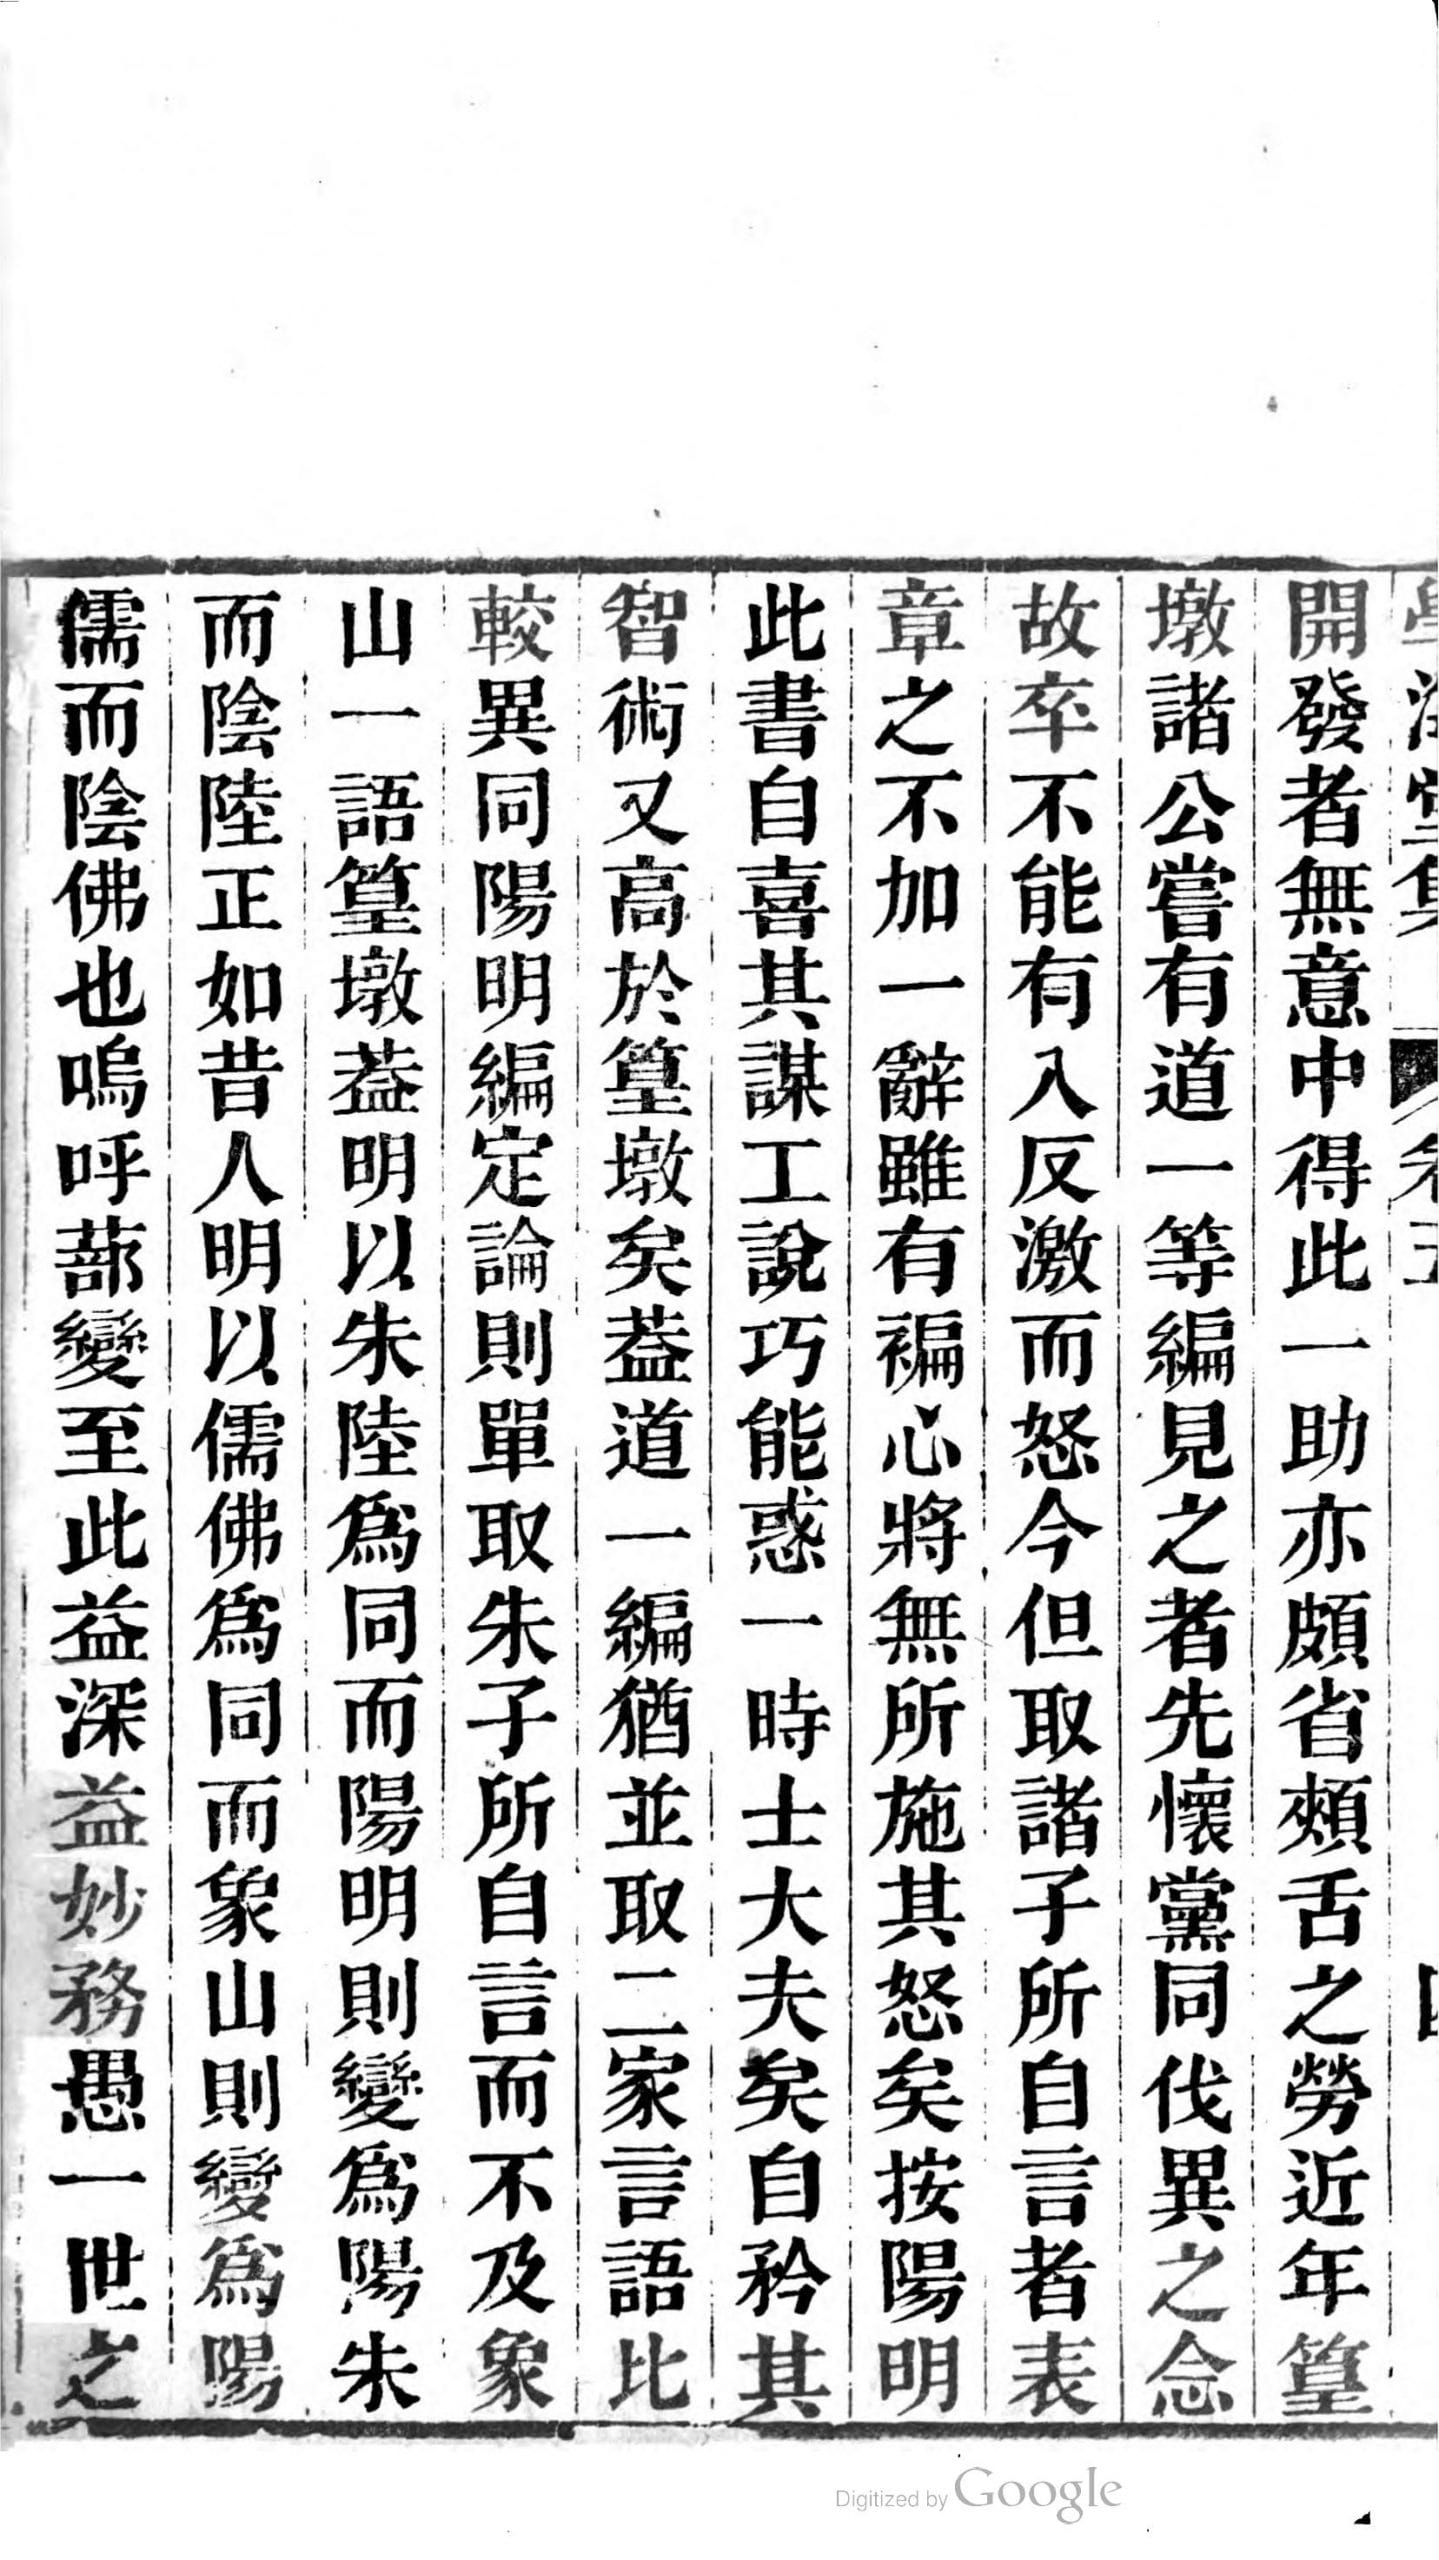 開發者無意中得此一助亦頗省頰舌之勞近年篁
墩諸公嘗有道一等編見之者先懷黨同伐異之念
故卒不能有入反激而怒今但取諸子所自言者表
章之不加一辭雖有褊心將無所施其怒矣按陽明
此書自喜其謀工說巧能惑一時士大夫矣自矜其
智術又高於篁墩矣葢道一編猶並取二家言語比
較異同陽明編定論則單取朱子所自言而不及象
山一語篁墩葢明以朱陸爲同而陽明則變爲陽朱
而陰陸正如昔人明以儒佛爲同而象山則變爲陽
儒而陰佛也嗚呼蔀變至此益深益妙務愚一世之
Digitized by Google